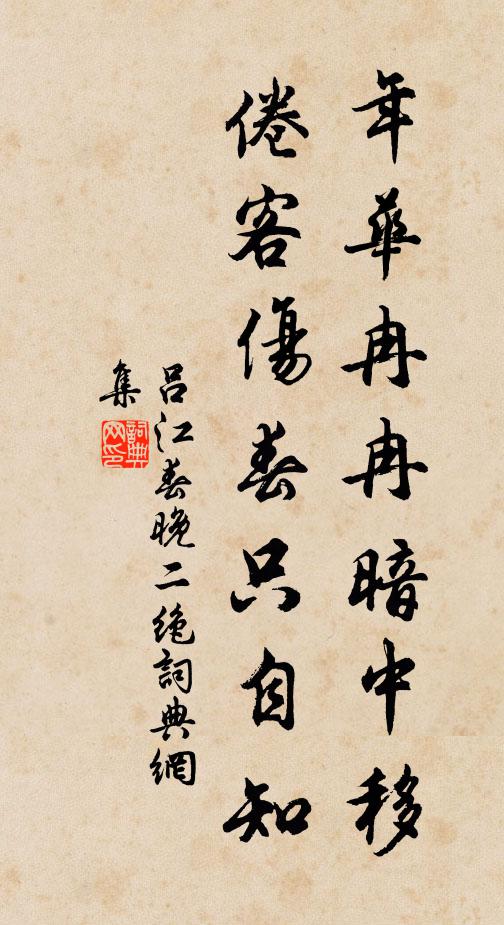 年華冉冉暗中移
倦客傷春只自知
呂江春晚二絶詞典網
集
詞典
网印